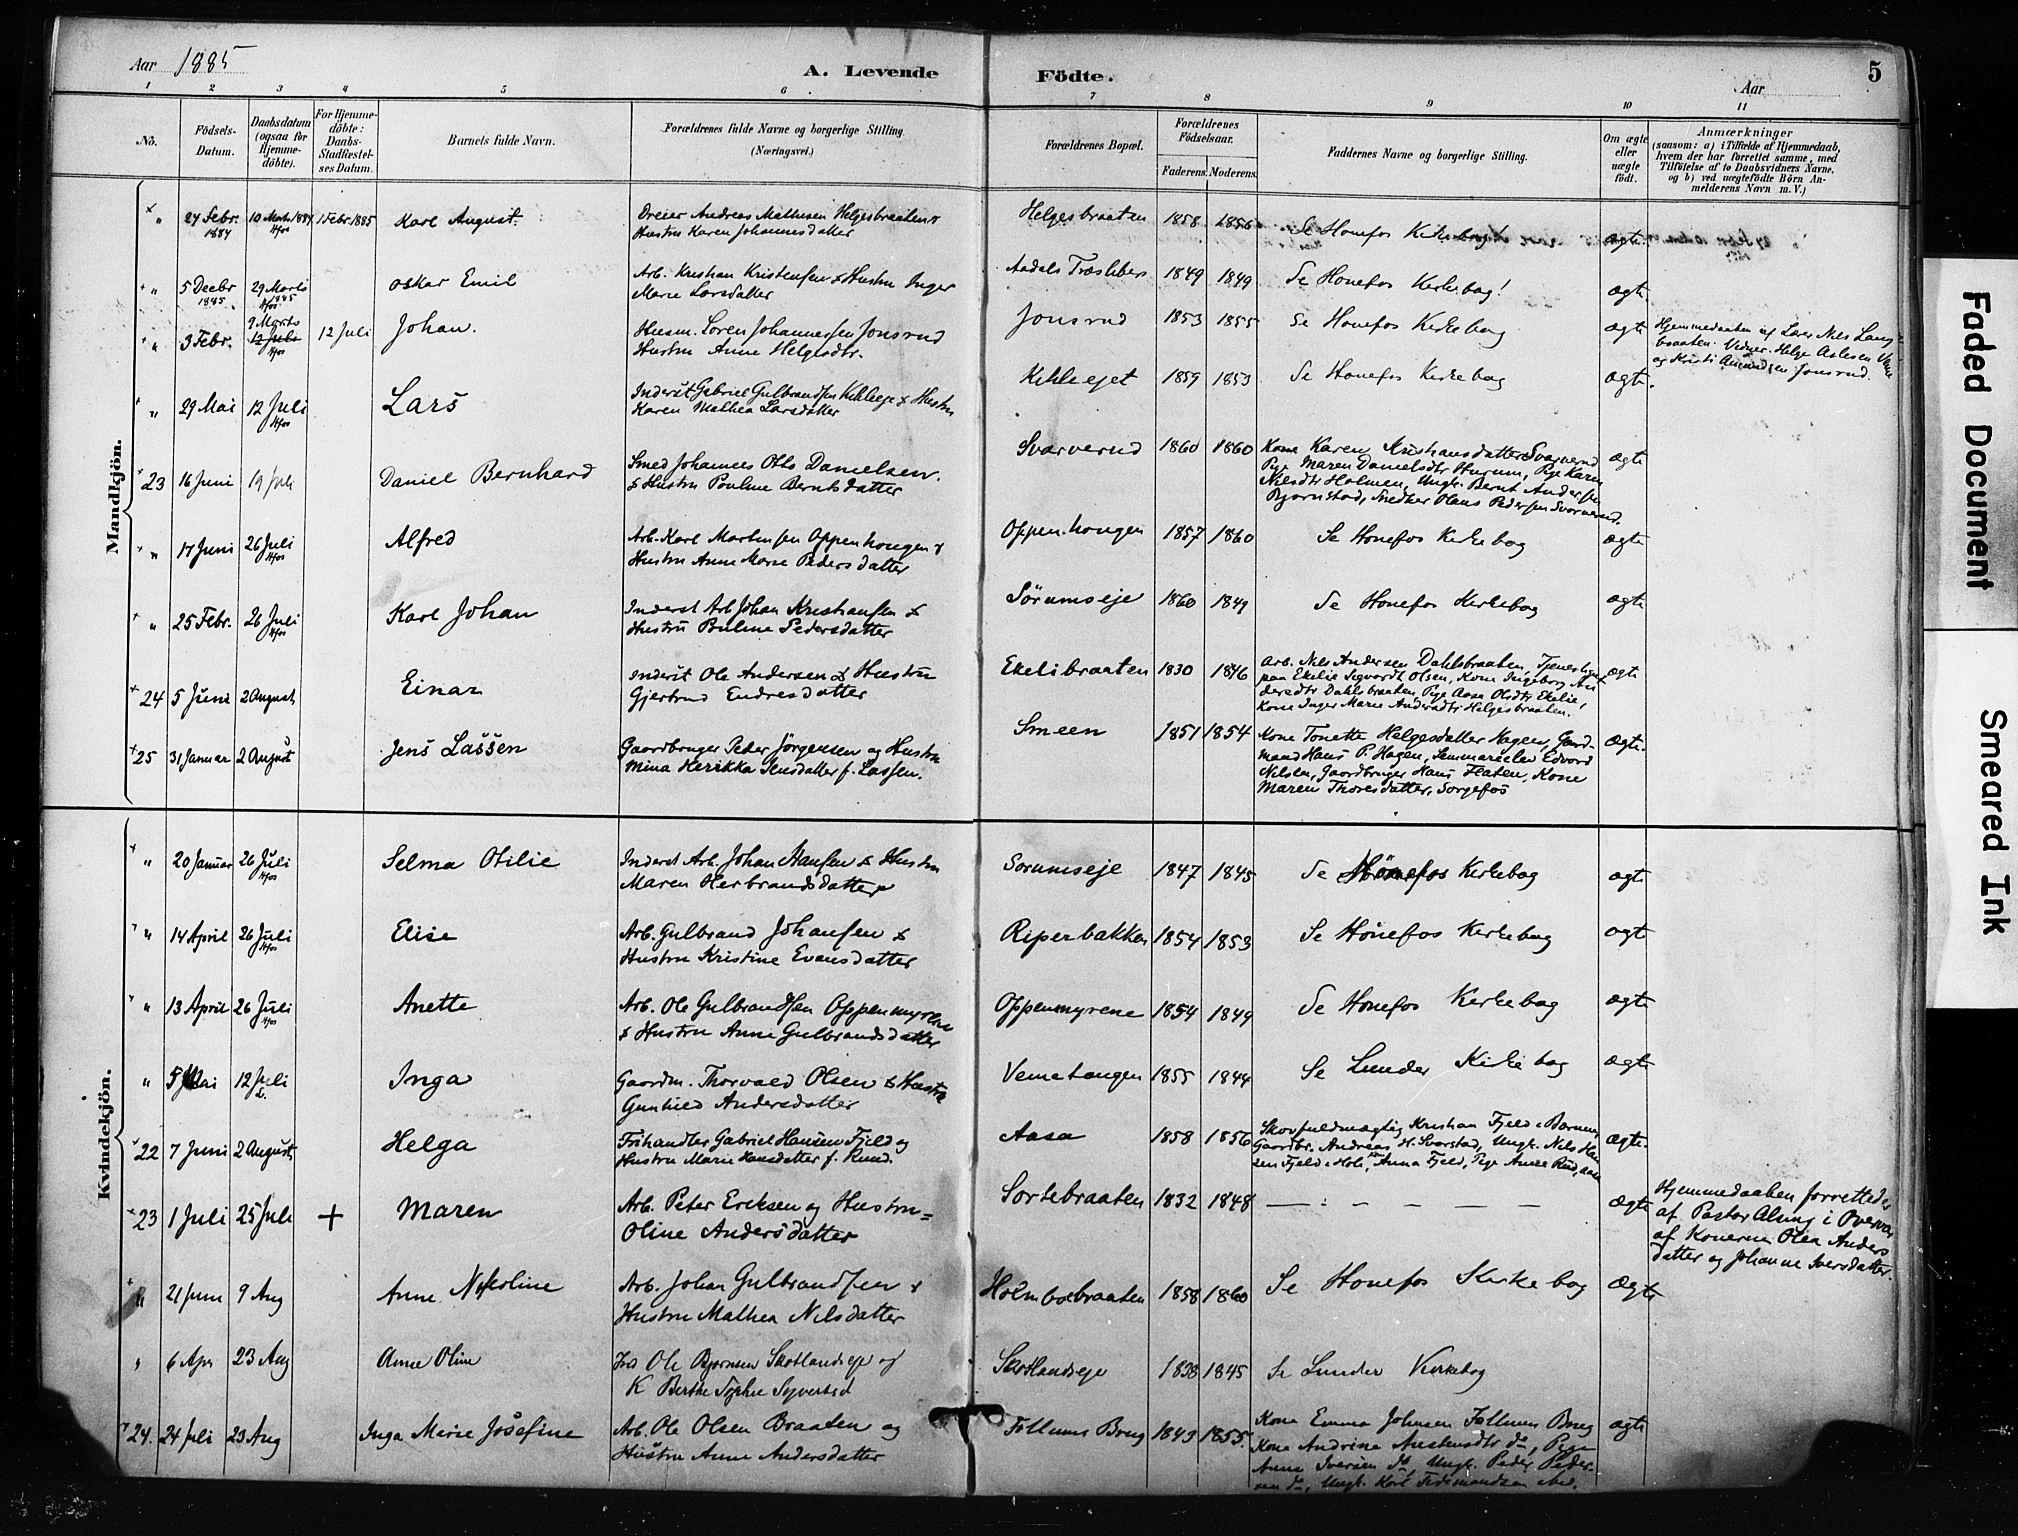 Aar 1885
A. Levende
Födte.
Aar
5
1 2 3 4 5 6 7 8 9 10 11
No.
Födsels-
Datum.
Daabsdatum
(ogsaa for
Hjemme-
döbte).
For Hjemme-
döbte:
Daabs-
Stadfæstel-
ses Datum.
Barnets fulde Navn.
Forældrenes fulde Navne og borgerlige Stilling.
(Næringsvei.)
Forældrenes Bopæl.
Forældrenes
Födselsaar.
Faderens. Moderens.
Faddernes Navne og borgerlige Stilling.
Om ægte
eller
uægte
födt.
Anmærkninger
(saasom: a) i Tilfælde af Hjemmedaab,
hvem der har forrettet samme, med
Tilföielse af to Daabsvidners Navne,
og b) ved uægtefödte Börn An-
melderens Navn m. V.)
Mandkjön.
" 24 Febr. 1884 10 Marts 1884 Hfos 1 Febr 1885 Karl August. Dreier Andreas Mathisen Helgesbraaten &
Hustru Karen Johannesdatter Helgesbraaten 1858 1856 Se Hønefos Kirkebog! ægte
" 5 Decbr 1885 29 Marts 1885 Hfos Oskar Emil Arb. Kristian Kristensen & Hustru Inger
Marie Larsdatter Aadals Træsliberi 1849 1849 Se Hønefos Kirkebog! ægte
" 3 Febr. 9 Marts 12 Juli Hfos 12 Juli Johan. Husm. Søren Johannessen Jonsrud
Hustru Anne Helgesdtr. Jonsrud 1853 1855 Se Hønefos Kirkebog ægte
Hjemmedaaben af Lærer Nils Lang-
braaten. Vidner. Helge Aslesen
og Kristi Amundsen Jonsrud.
" 29 Mai 12 Juli Hfos Lars Inderst Gabriel Gulbrandsen Kihleeje & Hustru
Karen Mathea Larsdatter Kihleejet 1859 1853 Se Hønefos Kirkebog ægte.
23 16 Juni 19 Juli Daniel Bernhard Smed Johannes Otto Danielsen
& Hustru Pauline Berntsdatter Svarverud 1860 1860 Kone Karen Kristiansdatter Svarverud
Pige Maren Danielsdtr Hurum, Pige Karen
Nilsdtr Holmen, Ungk. Bernt Andersen
Bjørnstad, Snedker Hans Pedersen Svarverud. ægte
" 17 Juni 26 Juli Hfos Alfred Arb. Karl Martinsen Oppenhougen &
Hustru Anne Marie Pedersdatter Oppenhougen 1857 1860 Se Hønefos Kirkebog ægte
" 25 Febr. 26 Juli Hfos Karl Johan Inderst Arb Johan Kristiansen &
Hustru Pauline Pedersdatter Sörumseje 1860 1849 Se Hønefos Kirkebog ægte
24 5 Juni 2 August Einar Inderst Ole Andersen & Hustru
Gjertrud Endresdatter Ekelibraaten 1830 1846 Arb. Nils Andersen Dahlsbraaten, Tjenestegut
paa Ekelie Segvardt Olsen, Kone Ingeborg An-
dersdtr Dahlsbraaten, Pige Aasa Olsdtr Ekelie,
Kone Inger Marie Andersdtr Helgesbraaten. ægte
25 31 Januar 2 August Jens Lassen Gaardbruger Peder Jörgensen og Hustru
Mina Henrikka Jensdatter f. Lassen. Smeen 1851 1854 Kone Tonette Helgesdatter Hagen, Gaard-
mand Hans P. Hagen, Seminarielev Edvard
Nilsen, Gaardbruger Hans Flaten, Kone
Maren Thoresdatter, Sorgefos ægte.
Kvindekjön.
" 20 Januar 26 Juli Hfos Selma Otilie Inderst Arb. Johan Hansen & Hustru
Maren Herbrandsdatter Sørumseje 1847 1845 Se Hønefos Kirkebog ægte
" 14 April 26 Juli Hfos Elise Arb. Gulbrand Johansen &
Hustru Kristine Evansdatter Riperbakken 1854 1853 Se Hønefos Kirkebog ægte
" 13 April 26 Juli Hfos Anette Arb. Ole Gulbrandsen Oppenmyrene
& Hustru Anne Gulbrandsdatter Oppenmyrene 1854 1849 Se Hønefos Kirkebog ægte
" 5 Mai 12 Juli L. Inga Gaardm. Thorvald Olsen & Hustru
Gunhild Andersdatter Vemetangen 1855 1844 Se Lunder Kirkebog ægte
22 7 Juni 2 August Helga Frihandler Gabriel Hansen Fjeld og
Hustru Marie Hansdatter f. Ruud. Aasa 1858 1856 Skovfuldmægtig Kristian Fjeld i Bærum,
Gaardbr. Andreas H. Svarstad, Ungk. Nils Han-
sen Fjeld i Hole, Anna Fjeld, Pige Anne Rud, Aasa ægte.
23 1 Juli 25 Juli + Maren Arb. Peter Eriksen og Hustru
Oline Andersdatter Sortebraaten 1832 1848 — : — — — — ægte
Hjemmedaaben forrettedes
af Pastor Alsing i Overvær
af Konerne Olea Anders
datter og Johanne Iversdatter.
" 21 Juni 9 Aug Anne Nikoline Arb. Johan Gulbrandsen &
Hustru Mathea Nilsdatter Holmboebraaten 1858 1860 Se Hønefos Kirkebog Ægte
" 6 Apr 23 Aug Anne Oline Ole Bjørnsen Skotlandseje og
K Berthe Sophie Syversd Skotlandseje 1838 1845 Se Lunder Kirkebog
24. 24 Juli 23 Aug Inga Marie Josefine Arb. Ole Olsen Braaten og
Hustru Anne Andersdatter Follums Brug 1843 1855. Kone Emma Johnsen Follums Brug
Kone Andrine Arestensdtr do, Pige
Anne Iversen do, Ungk. Peder Peder-
sen do, Ungk. Karl Ferdinandsen ægte
Faded Document
Smeared Ink